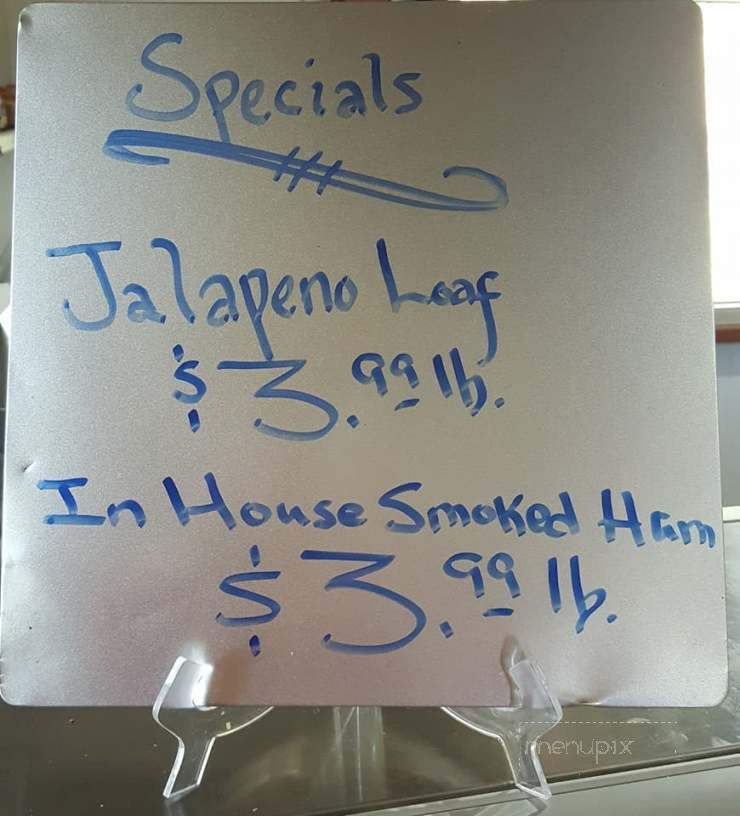 Specials
Jalapeno Loaf
$3.99 lb.
In House Smoked Ham
$3.99 lb.
menupix